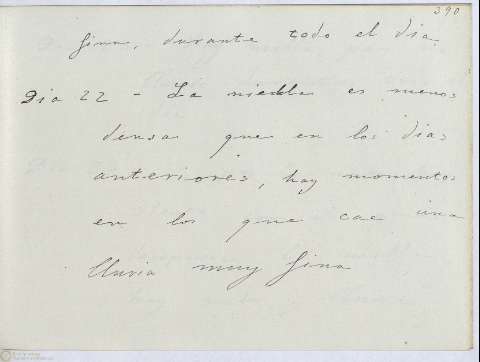 390
fina, durante todo el dia.
Dia 22 - La niebla es menos
densa que en los dias
anteriores, hay momentos
en los que cae una
lluvia muy fina